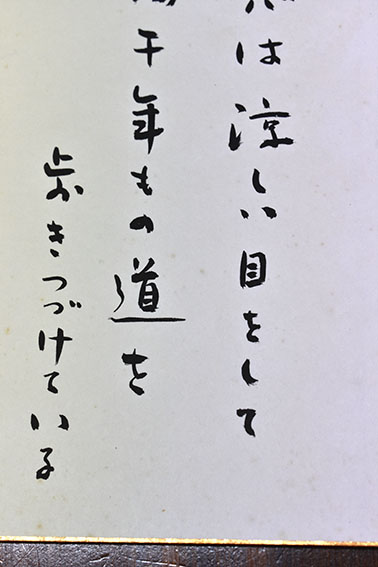 は涼しい目をして
千年もの道を
歩きつづけている